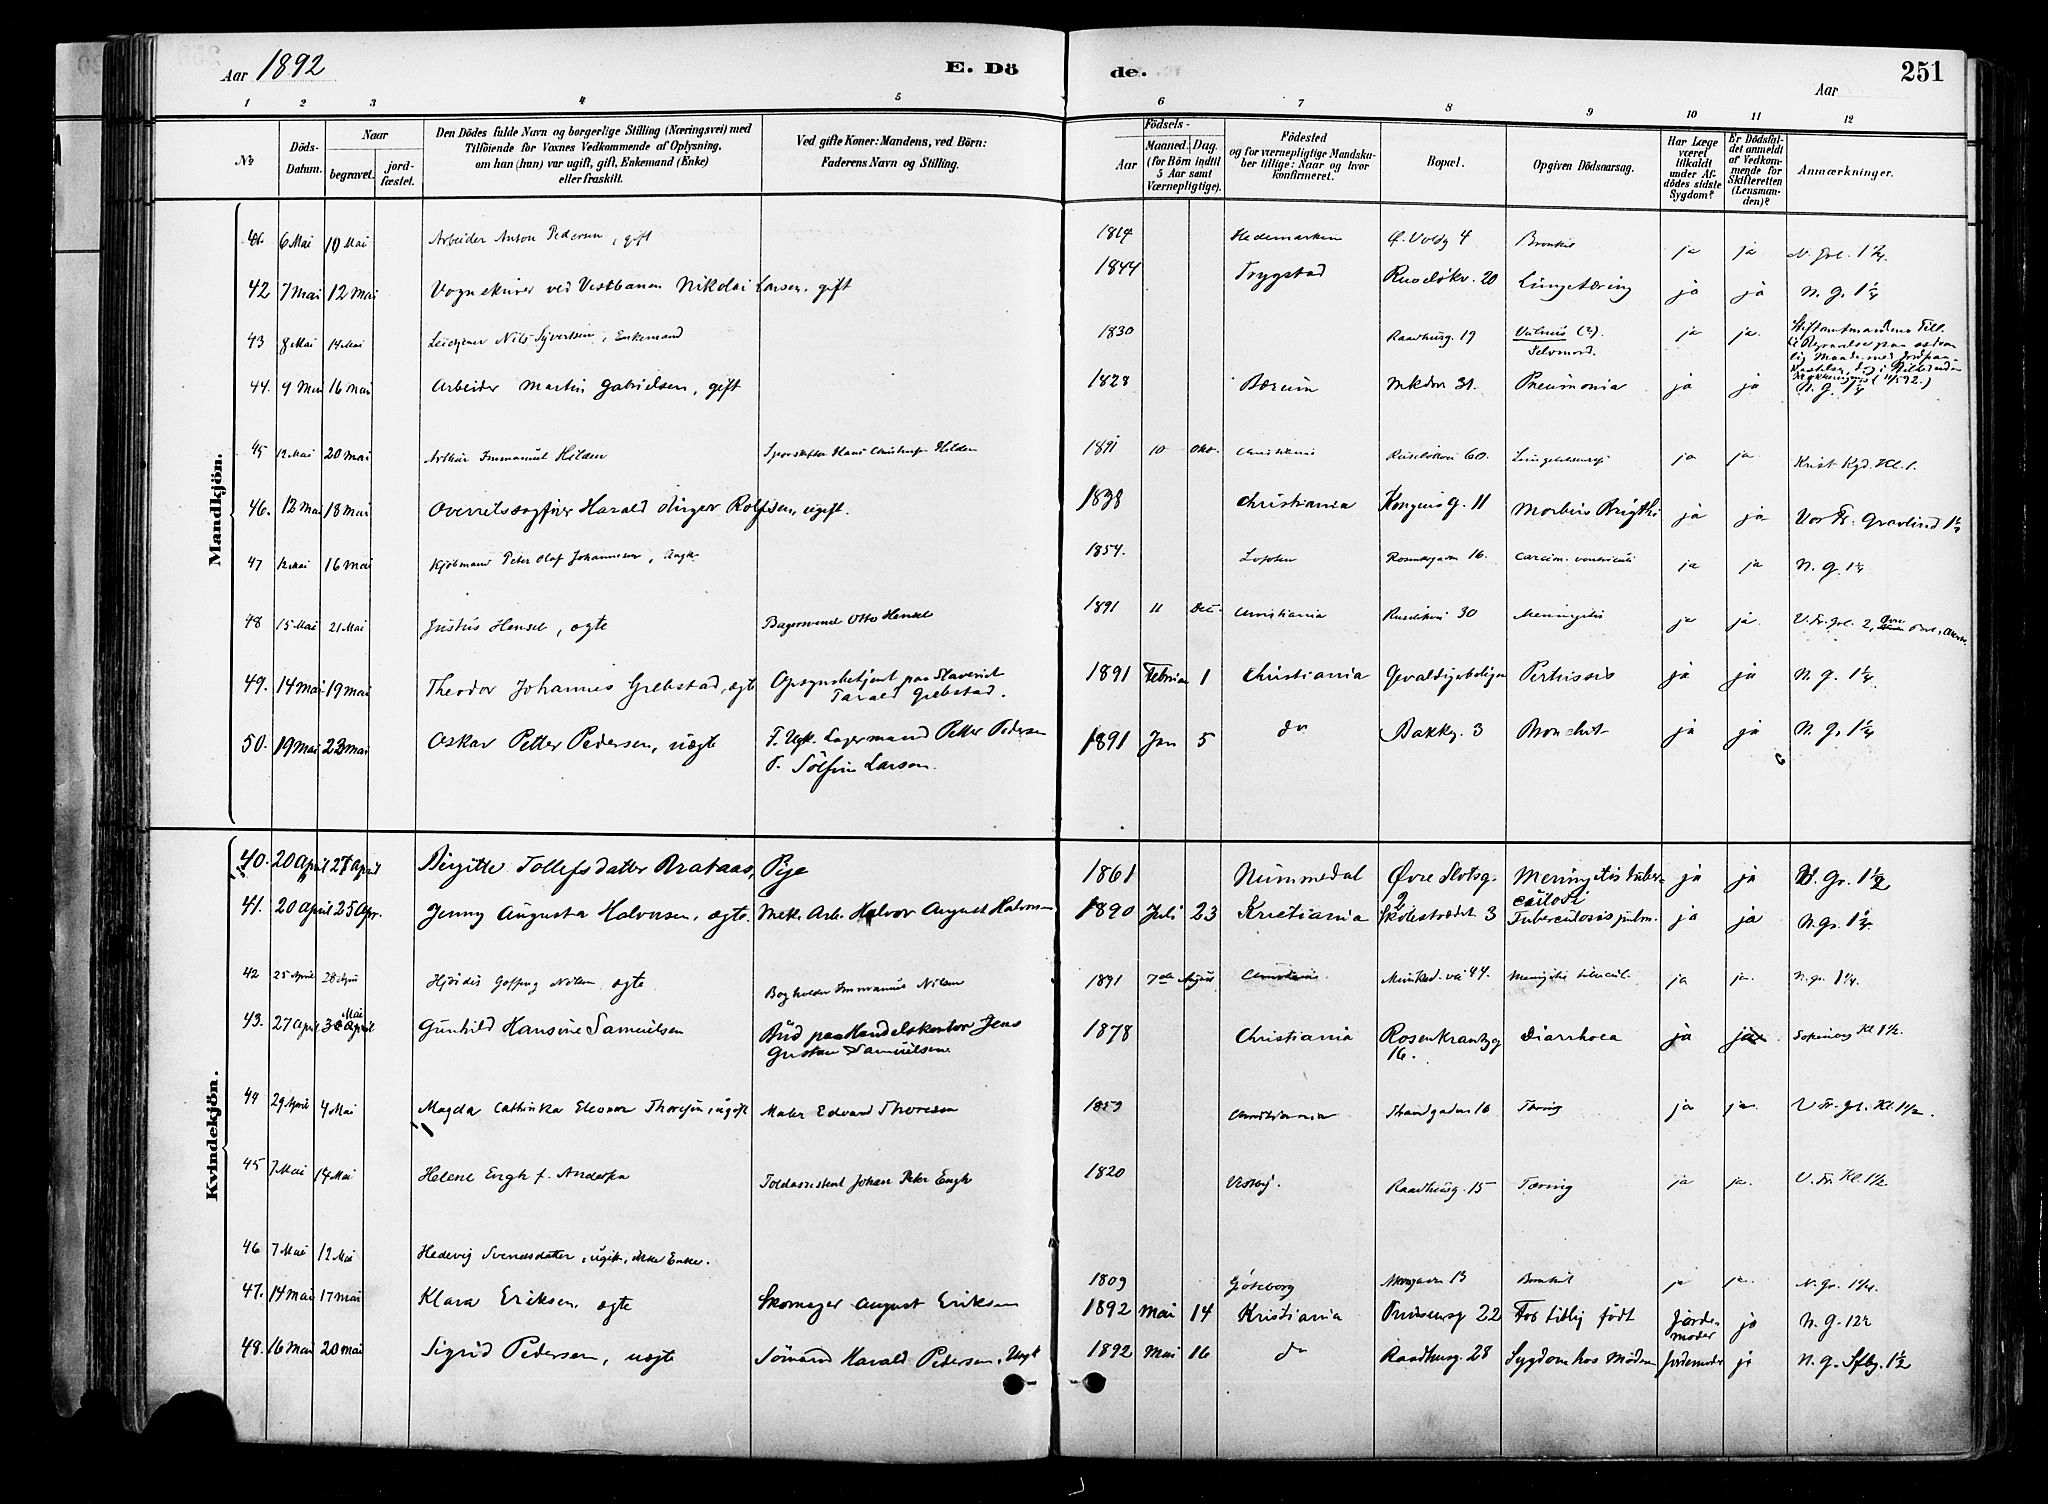 Aar 1892
E. Dö
de.
Aar
251
1 2 3 4 5 6 7 8 9 10 11 12
No
Döds-Datum.
Naar
begravet.
jord-fæstet.
Den Dödes fulde Navn og borgerlige Stilling (Næringsvei) med
Tilföiende for Voxnes Vedkommende af Oplysning,
om han (hun) var ugift, gift, Enkemand (Enke)
eller fraskilt.
Ved gifte Koner: Mandens, ved Börn:
Faderens Navn og Stilling.
Födsels-
Aar
Maaned. Dag.
(for Börn indtil
5 Aar samt
Værnepligtige).
Födested
og for værnepligtige Mandsku-
ber tillige: Naar og hvor
konfirmeret.
Bopæl.
Opgiven Dödsaarsag.
Har Læge
været
tilkaldt
under Af-
dödes sidste
Sygdom?
Er Dödsfal-
det anmeldt
af Vedkom-
mende for
Skifteretten
(Lensman-
den)?
Anmærkninger.
Mandkjön.
41. 6 Mai 10 Mai Arbeider Anton Pedersen, gift 1814 Hedemarken Ø. Voldg 4 Bronkit ja ja
42 7 Mai 12 Mai Vognskriver ved Vestbanen Nikolai Larsen, gift 1844 Trygstad Ruseløkv. 20 Lungetæring ja ja N. G. 1 1/4
43 8 Mai 14 Mai Nils Syvertsen, Enkemand 1830 Raadhusg. 19 Vulnus (?). Selvmord. ja ja
44. 9 Mai 16 Mai Arbeider Martin Gabrielsen, gift 1828 Bærum Mkdrv 31. Pneumonia ja ja N. G. 1 1/4
45 12 Mai 20 Mai Arthur Immanuel Hilden Hans Christoph Hilden 1891 10 Okt. Christiania Ruseløkvei 60. ja ja Krist Kgd. Kl. 1.
46. 12 Mai 18 Mai Overretssagfører Harald Rolfsen, ugift. 1838 Christiania Kongens G. 11 Morbus Brigthi ja ja Vor Fr. Gravlund 1 1/2
47 12 Mai 16 Mai Kjøbmand Peter Olaf Johannesen, Ungk. 1854. Lofoten 16. carcin. ventriculi ja ja N. G. 1 1/4
48 15 Mai 21 Mai Justus Hensel, ægte Bagersvend Otto Hensel 1891 11 Dec. Christiania Ruseløkvei 30 Meningitis ja ja
49. 14 Mai 19 Mai Theodor Johannes Grebstad, ægte Opsynsbetjent paa Slaveriet
Tarald Grebstad. 1891 Februar 1 Christiania Gevaldigerboligen Pertussis ja ja N. G. 1 1/4
50. 19 Mai 23 Mai Oskar Petter Pedersen, uægte F. Ugk. Lagermand Petter Pedersen
P. Sölfine Larsen. 1891 Jan 5 do Bakkg. 3 Bronchit ja ja N. G. 1 1/4
Kvindekjön.
40. 20 April 27 April Birgitte Tollefsdatter Brataas, Pige 1861 Nummedal Øvre Slotsg. 2 Meningitis tuberculosi ja ja V. Gr. 1 1/2
41. 20 April 25 Apr. Jenny Augusta Halvorsen, ægte. Mek. Arb. Halvor August Halvorsen 1890 Juli 23 Kristiania Skolestrædet 3 Tuberculosis pulm. ja ja N. Gr. 1 1/4.
42 25 April 28 April Hjördis Nilsen ægte Bogholder Immanuel Nilsen 1891 7de August Christiania. Munked. vei 44. Meningitis tubercul. ja ja. N. gr. 1 1/4.
43. 27 April 3 Mai Gunhild Hansine Samuelsen Bud paa Handelskontor Jens
Gustav Samuelsen. 1878 Christiania Rosenkrantzg 16. Diarrhoea ja ja Kl 1 1/2.
44 29 April 4 Mai Magda Cathinka Eleonor Thoresen, ugift Maler Edvard Thoresen 1859 Christiania Strandgaden 16 Tæring ja ja. V Fr. Gr. Kl. 1 1/2.
45 7 Mai 14 Mai Helene Engh f. Toldassistent Johan Peter Engh 1820 Vestby. Raadhusg. 15 Tæring ja ja. V. Fr. Kl. 1 1/2.
46 7 Mai 12 Mai Hedevig Svendsdatter, ugift, ikke Enke. 1809 Göteborg 13 Bronkit ja ja. N. Gr. 1 1/4.
47. 14 Mai 17 Mai Klara Eriksen, ægte Skomager August Eriksen 1892 Mai 14 Kristiania Prinsensg 22 For tidlig födt Jorde-moder ja N. G.
48. 16 Mai 20 Mai Sigrid Pedersen, uægte Sömand Harald Pedersen, Ungk 1892 Mai 16 do Raadhusg. 28 Sygdom hos Moderen Jordemoder ja N. G. Sfbg. 1 1/2